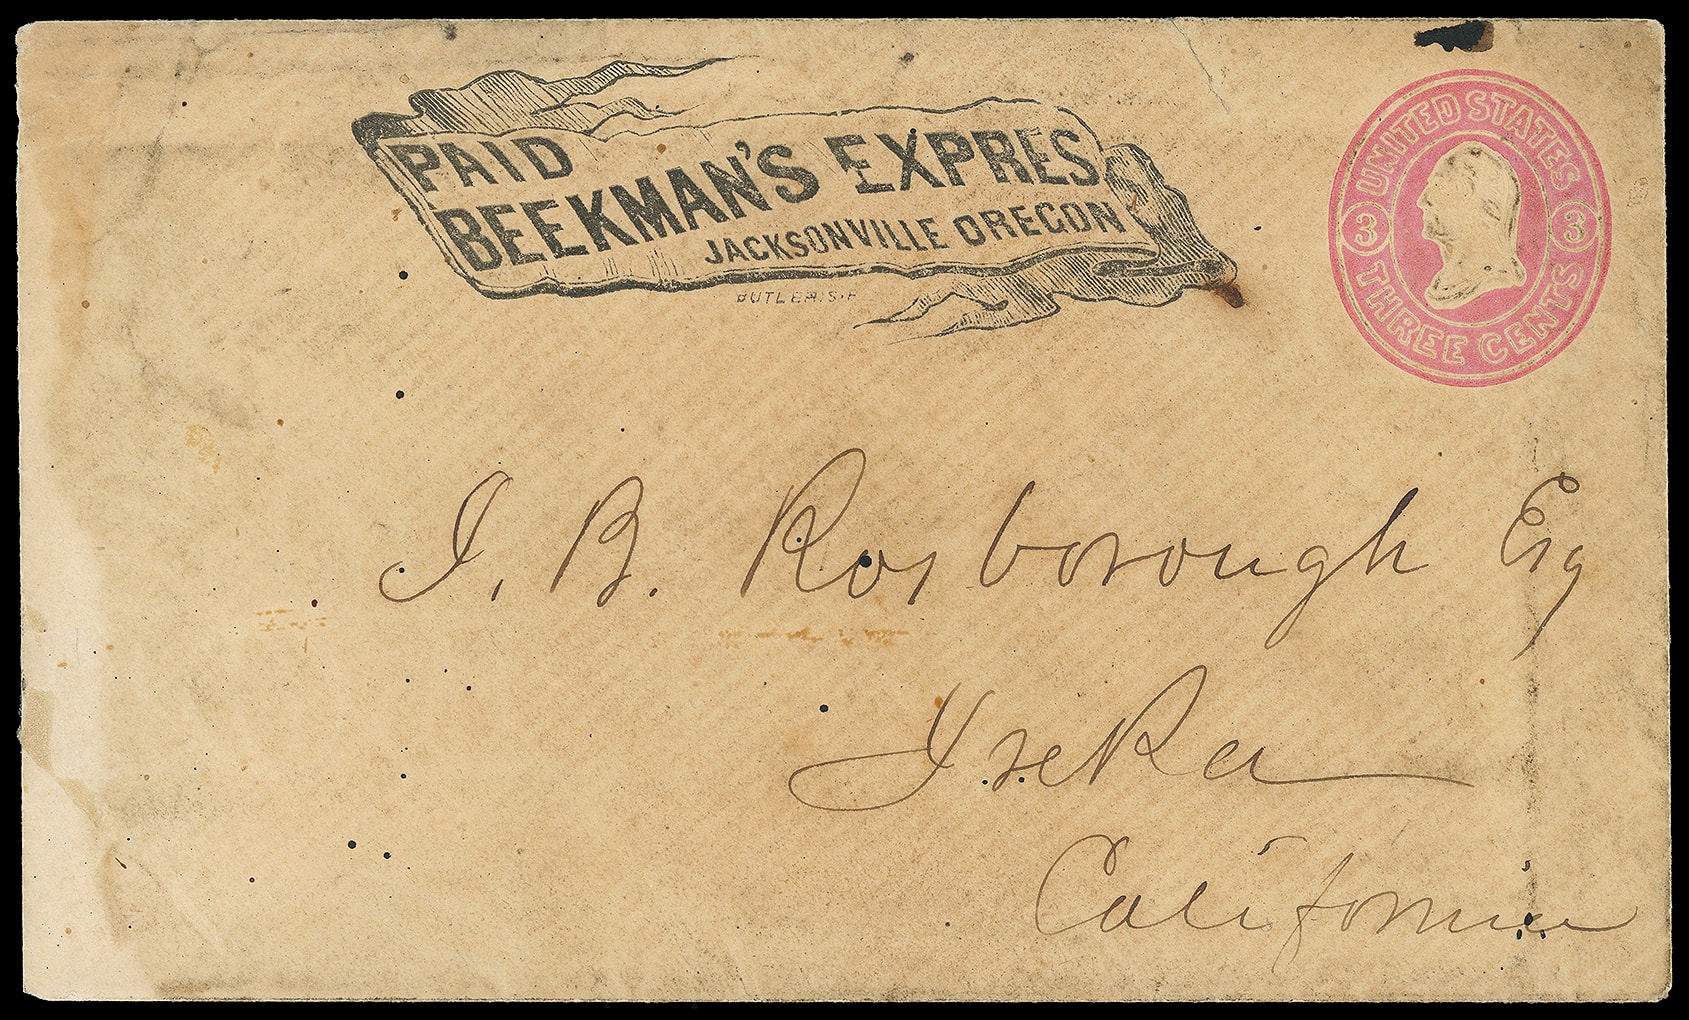 PAID
BEEKMAN'S EXPRES
JACKSONVILLE OREGON
BUTLER.S.F.
UNITED STATES
3 3
THREE CENTS
J. B. Rosborough Esq
YreKa
California